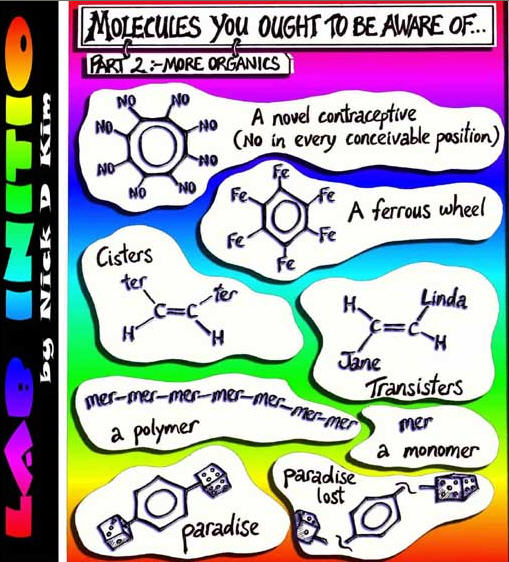 LAB INITIO
by Nick D Kim
MOLECULES YOU OUGHT TO BE AWARE OF...
PART 2:-MORE ORGANICS
NO NO
NO NO
NO NO
NO NO
A novel contraceptive
(No in every conceivable position)
Fe
Fe Fe
Fe Fe
Fe
A ferrous wheel
Cisters
ter ter
C=C
H H
H Linda
C=C
Jane H
Transisters
mer-mer-mer-mer-mer-mer-mer
a polymer
mer
a monomer
paradise
paradise
lost